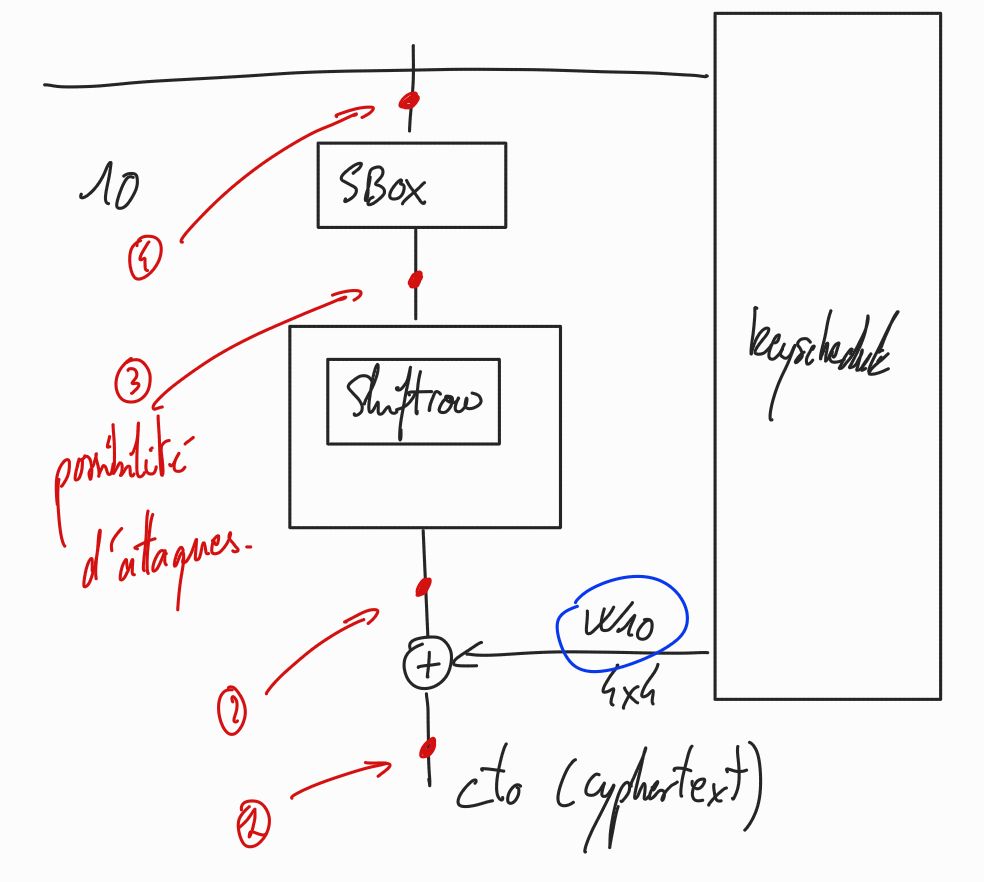 10
SBox
4
keyschedule
3
Shiftrow
possibilité
d'attaques.
W10
4x4
2
cto (cyphertext)
1